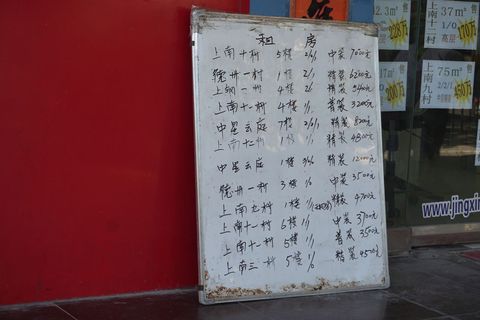 租房
上南十村 5楼 2/1/1 中装 7000元
德州一村 1楼 2/1 精装 6200元
上钢一村 4楼 精装
上南十一村 4楼 普装 3200元
中星云庭 7楼 2/2/1 精装
上南十二村 1楼 精装 4800元
中星云庭 1楼 精装 12000元
德州一村 3楼 1/0 中装 3500元
上南九村 1楼 1/1 精装 4700元
上南十一村 6楼 1/1 中装 3700元
上南十一村 5楼 1/1 普装 3500元
上南三村 5楼 1/0 精装 4500元
2.3m² 售
228万
上南十一村 37m² 售
高层 170万
17m² 售
200万
上南九村 75m² 售
2/2 450万
www.jingxin